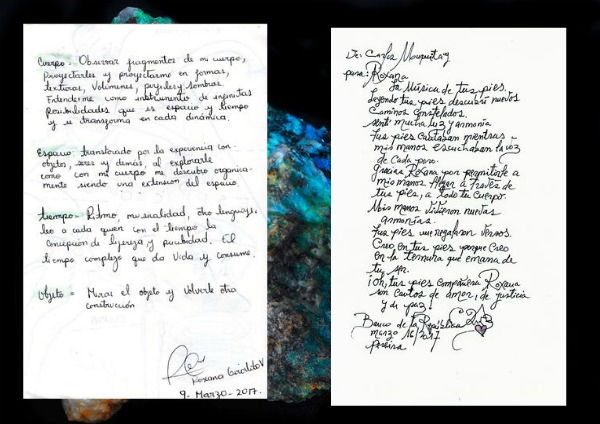 Cuerpo: Observar fragmentos de mi cuerpo,
Proyectarles y proyectarme en formas,
texturas, Volúmenes, pieles y Sombras.
Entenderme como instrumento de infinitas
Posibilidades que es espacio y tiempo
y se transforma en cada dinámica.
Espacio: transitado por la experiencia con
objetos, seres y demás, al explorarle
como con mi cuerpo me descubro organica-
mente siendo una extensión del espacio.
tiempo - Ritmo, musicalidad, otro lenguaje.
leo a cada quien con el tiempo la
Concepción de ligereza y parcialidad. El
tiempo complejo que da Vida y consume.
Objeto = Mirar el objeto y volverle otra
construcción
Roxana Giraldo V
9 - Marzo - 2017.
De: Carlos
para: Roxana
La Música de tus pies.
Leyendo tus pies descubrí nuevos
Caminos Constelados.
Sentí mucha luz y armonía
Tus pies cantaban mientras
mis manos escuchaban la voz
de Cada paso.
Gracias Roxana por permitirle a
mis manos llegar a través de
tus pies, a todo tu cuerpo.
Mis manos vivieron nuevas
armonías.
Tus pies me regalaron Versos.
Creo en tus pies porque Creo
en la ternura que emana de
tu ser.
¡Oh, tus pies compañera Roxana
son cantos de amor, de justicia
y de paz!
Banco de la República
marzo 16/2017
Pereira